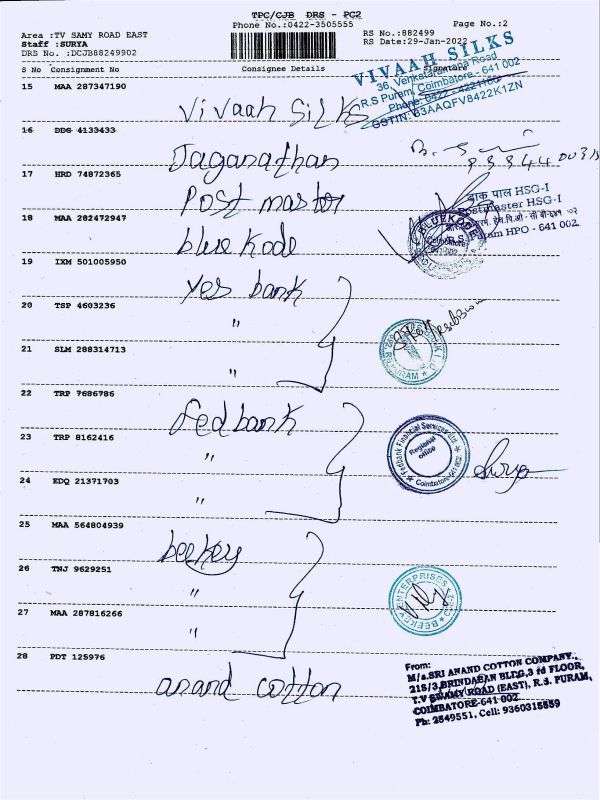 TPC/CJB DRS - PC2
Phone No.:0422-3505555
Page No.:2
Area :TV SAMY ROAD EAST
Staff :SURYA
DRS No. :DCJB88249902
RS No.:882499
RS Date:29-Jan-2022
S No Consignment No Consignee Details Signature
VIVAAH SILKS
36, Venkataramana Road
R.S Puram, Coimbatore - 641 002
Phone: 0422 - 4221163
GSTIN: 33AAQFV8422K1ZN
15 MAA 287347190
Vivaah Silks
16 DDG 4133433
Jaganathan
17 HRD 74872365
Post master
डाक पाल HSG-I
Postmaster HSG-I
R.S. Puram HPO - 641 002
18 MAA 282472947
blue kode
BLUEKODE
Coimbatore
19 IXM 501005950
Yes bank
20 TSP 4603236
"
21 SLM 288314713
"
22 TRP 7686786
fedbank
23 TRP 8162416
"
Fedbank Financial Services Ltd.
Regional
office
Coimbatore-641 002
Surya
24 EDQ 21371703
"
25 MAA 564804939
beekey
26 TNJ 9629251
"
BEEKEY ENTERPRISES
27 MAA 287816266
"
28 PDT 125976
anand cotton
From:
M/s.SRI ANAND COTTON COMPANY.,
215/3,BRINDABAN BLDG,3 rd FLOOR,
T.V SWAMY ROAD (EAST), R.S. PURAM,
COIMBATORE-641 002
Ph: 2549551, Cell: 9360315559